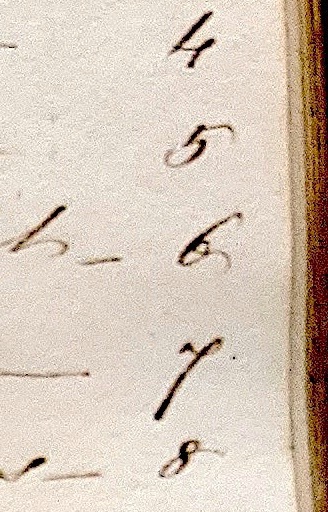 4
5
h_ 6
7
8